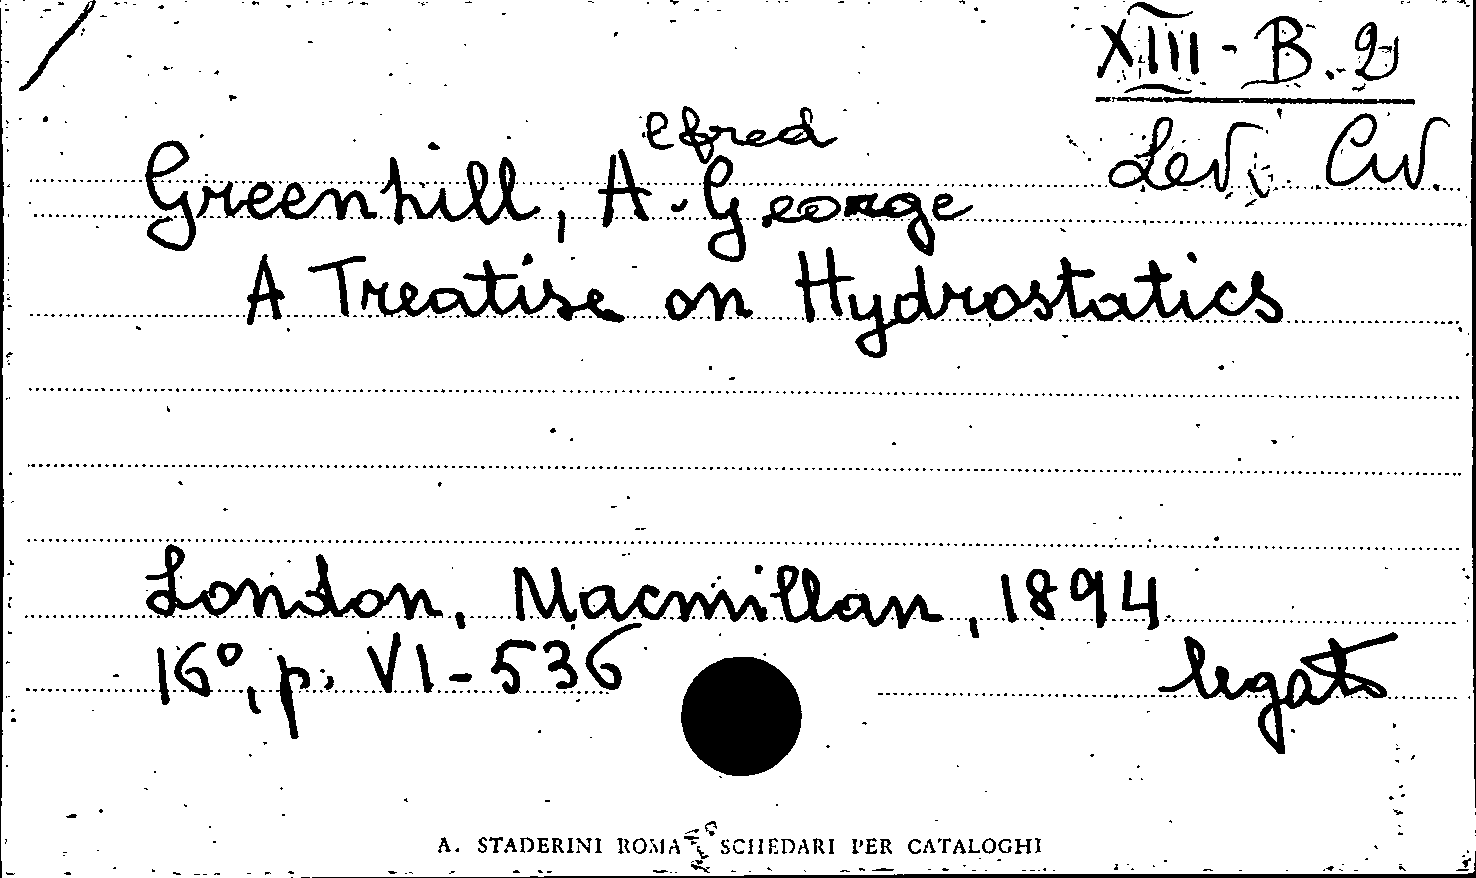 XIII - B. 2
Lev. Civ.
efred
Greenhill, A. George
A Treatise on Hydrostatics
London, Macmillan, 1894
16°, p. VI - 536
legato
A. STADERINI ROMA SCHEDARI PER CATALOGHI